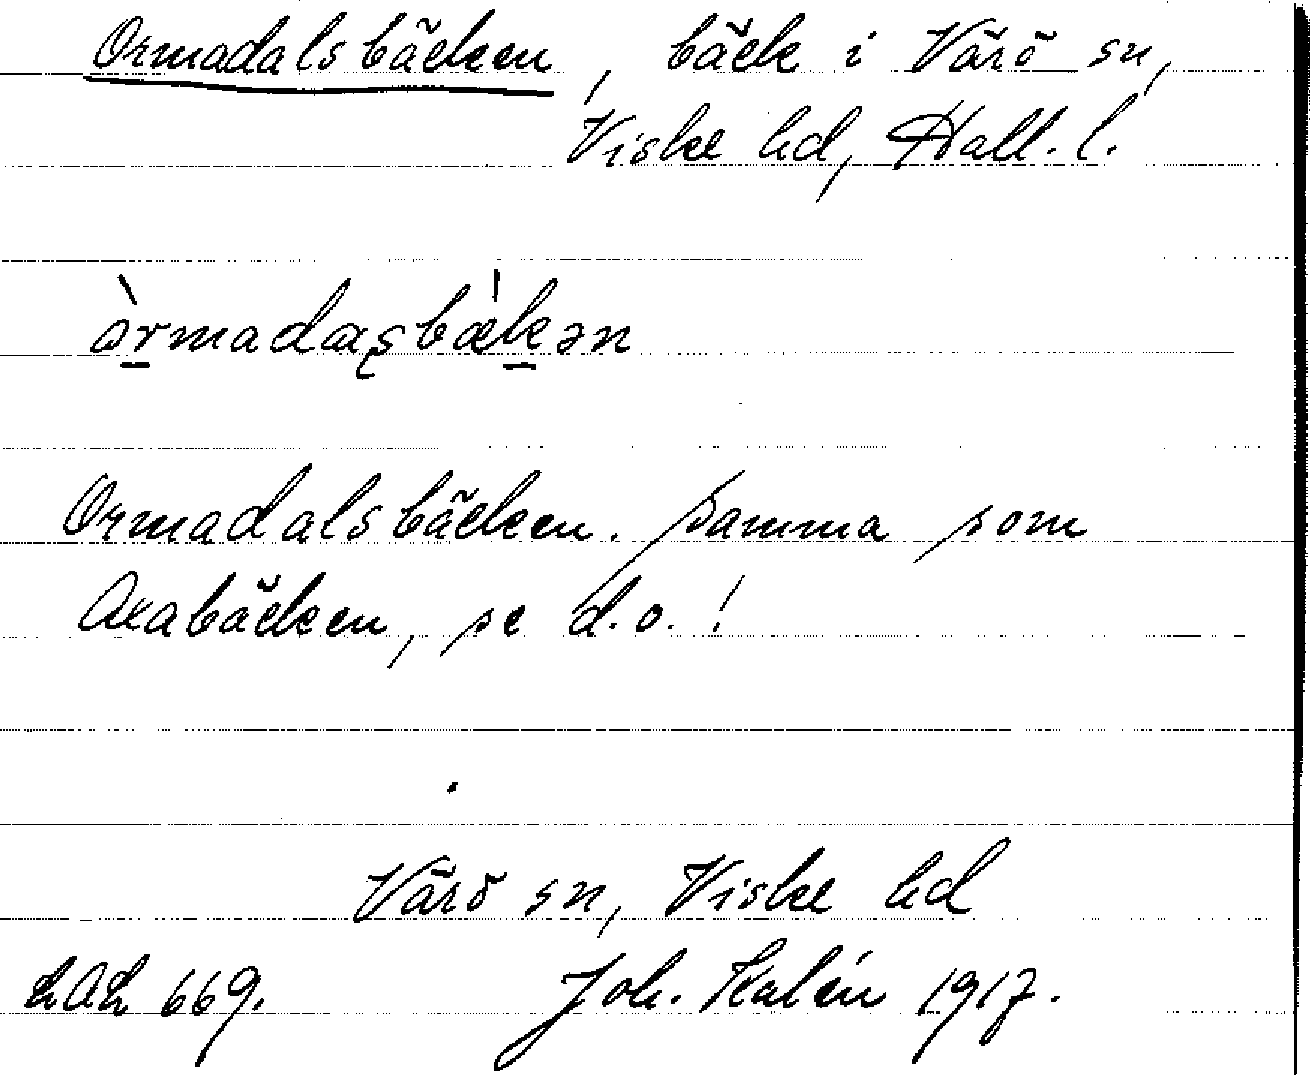 Ormadalsbäcken, bäck i Värö sn,
Viske hd, Hall. l.
òrmadaʂbæ̀kən
Ormadalsbäcken. Samma som
Axabäcken, se d.o.!
Värö sn, Viske hd
LAL 669. Joh. Kalén 1917.